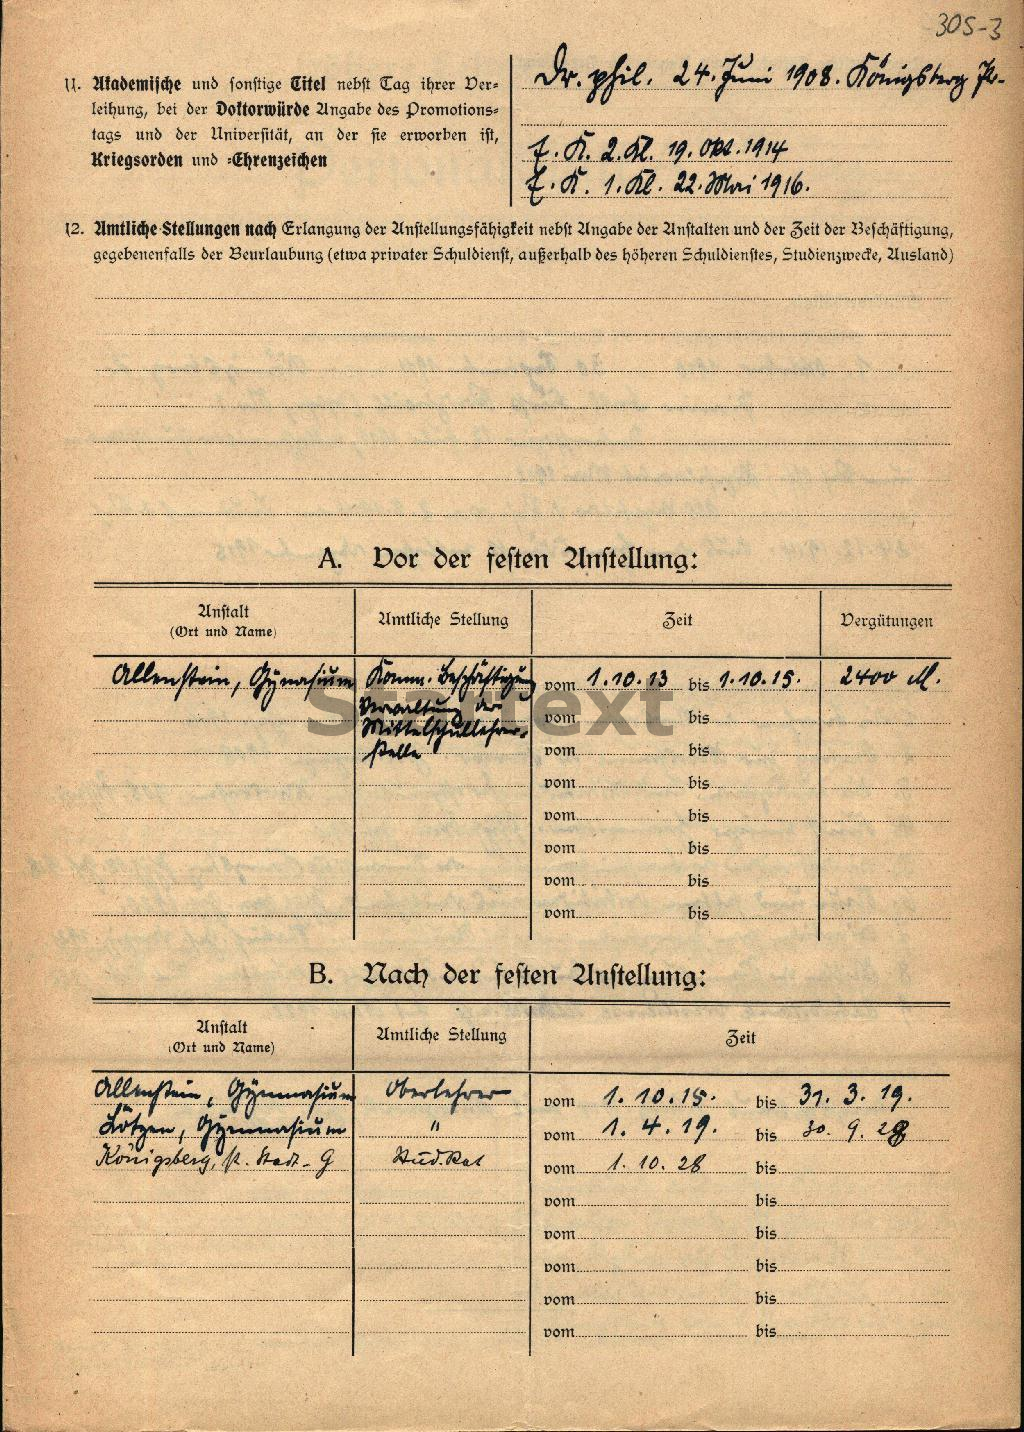 305-3
11. Akademische und sonstige Titel nebst Tag ihrer Ver-
leihung, bei der Doktorwürde Angabe des Promotions-
tags und der Universität, an der sie erworben ist,
Kriegsorden und -Ehrenzeichen
Dr. phil. 24. Juni 1908. Königsberg Pr.
E. K. 2. Kl. 19. Okt. 1914
E. K. 1. Kl. 22. Mai 1916.
12. Amtliche Stellungen nach Erlangung der Anstellungsfähigkeit nebst Angabe der Anstalten und der Zeit der Beschäftigung,
gegebenenfalls der Beurlaubung (etwa privater Schuldienst, außerhalb des höheren Schuldienstes, Studienzwecke, Ausland)
A. Vor der festen Anstellung:
Anstalt
(Ort und Name)
Amtliche Stellung
Zeit
Vergütungen
Allenstein, Gymnasium
Komm. Beschäftigung
Verwaltung der
Mittelschullehrer-
stelle
vom 1.10.13 bis 1.10.15. 2400 M.
vom bis
vom bis
vom bis
vom bis
vom bis
vom bis
vom bis
Starttext
B. Nach der festen Anstellung:
Anstalt
(Ort und Name)
Amtliche Stellung
Zeit
Allenstein, Gymnasium Oberlehrer vom 1. 10. 15. bis 31. 3. 19.
Lötzen, Gymnasium " vom 1. 4. 19. bis 30. 9. 28
Königsberg, st. Stadt-G Stud.Rat vom 1. 10. 28 bis
vom bis
vom bis
vom bis
vom bis
vom bis